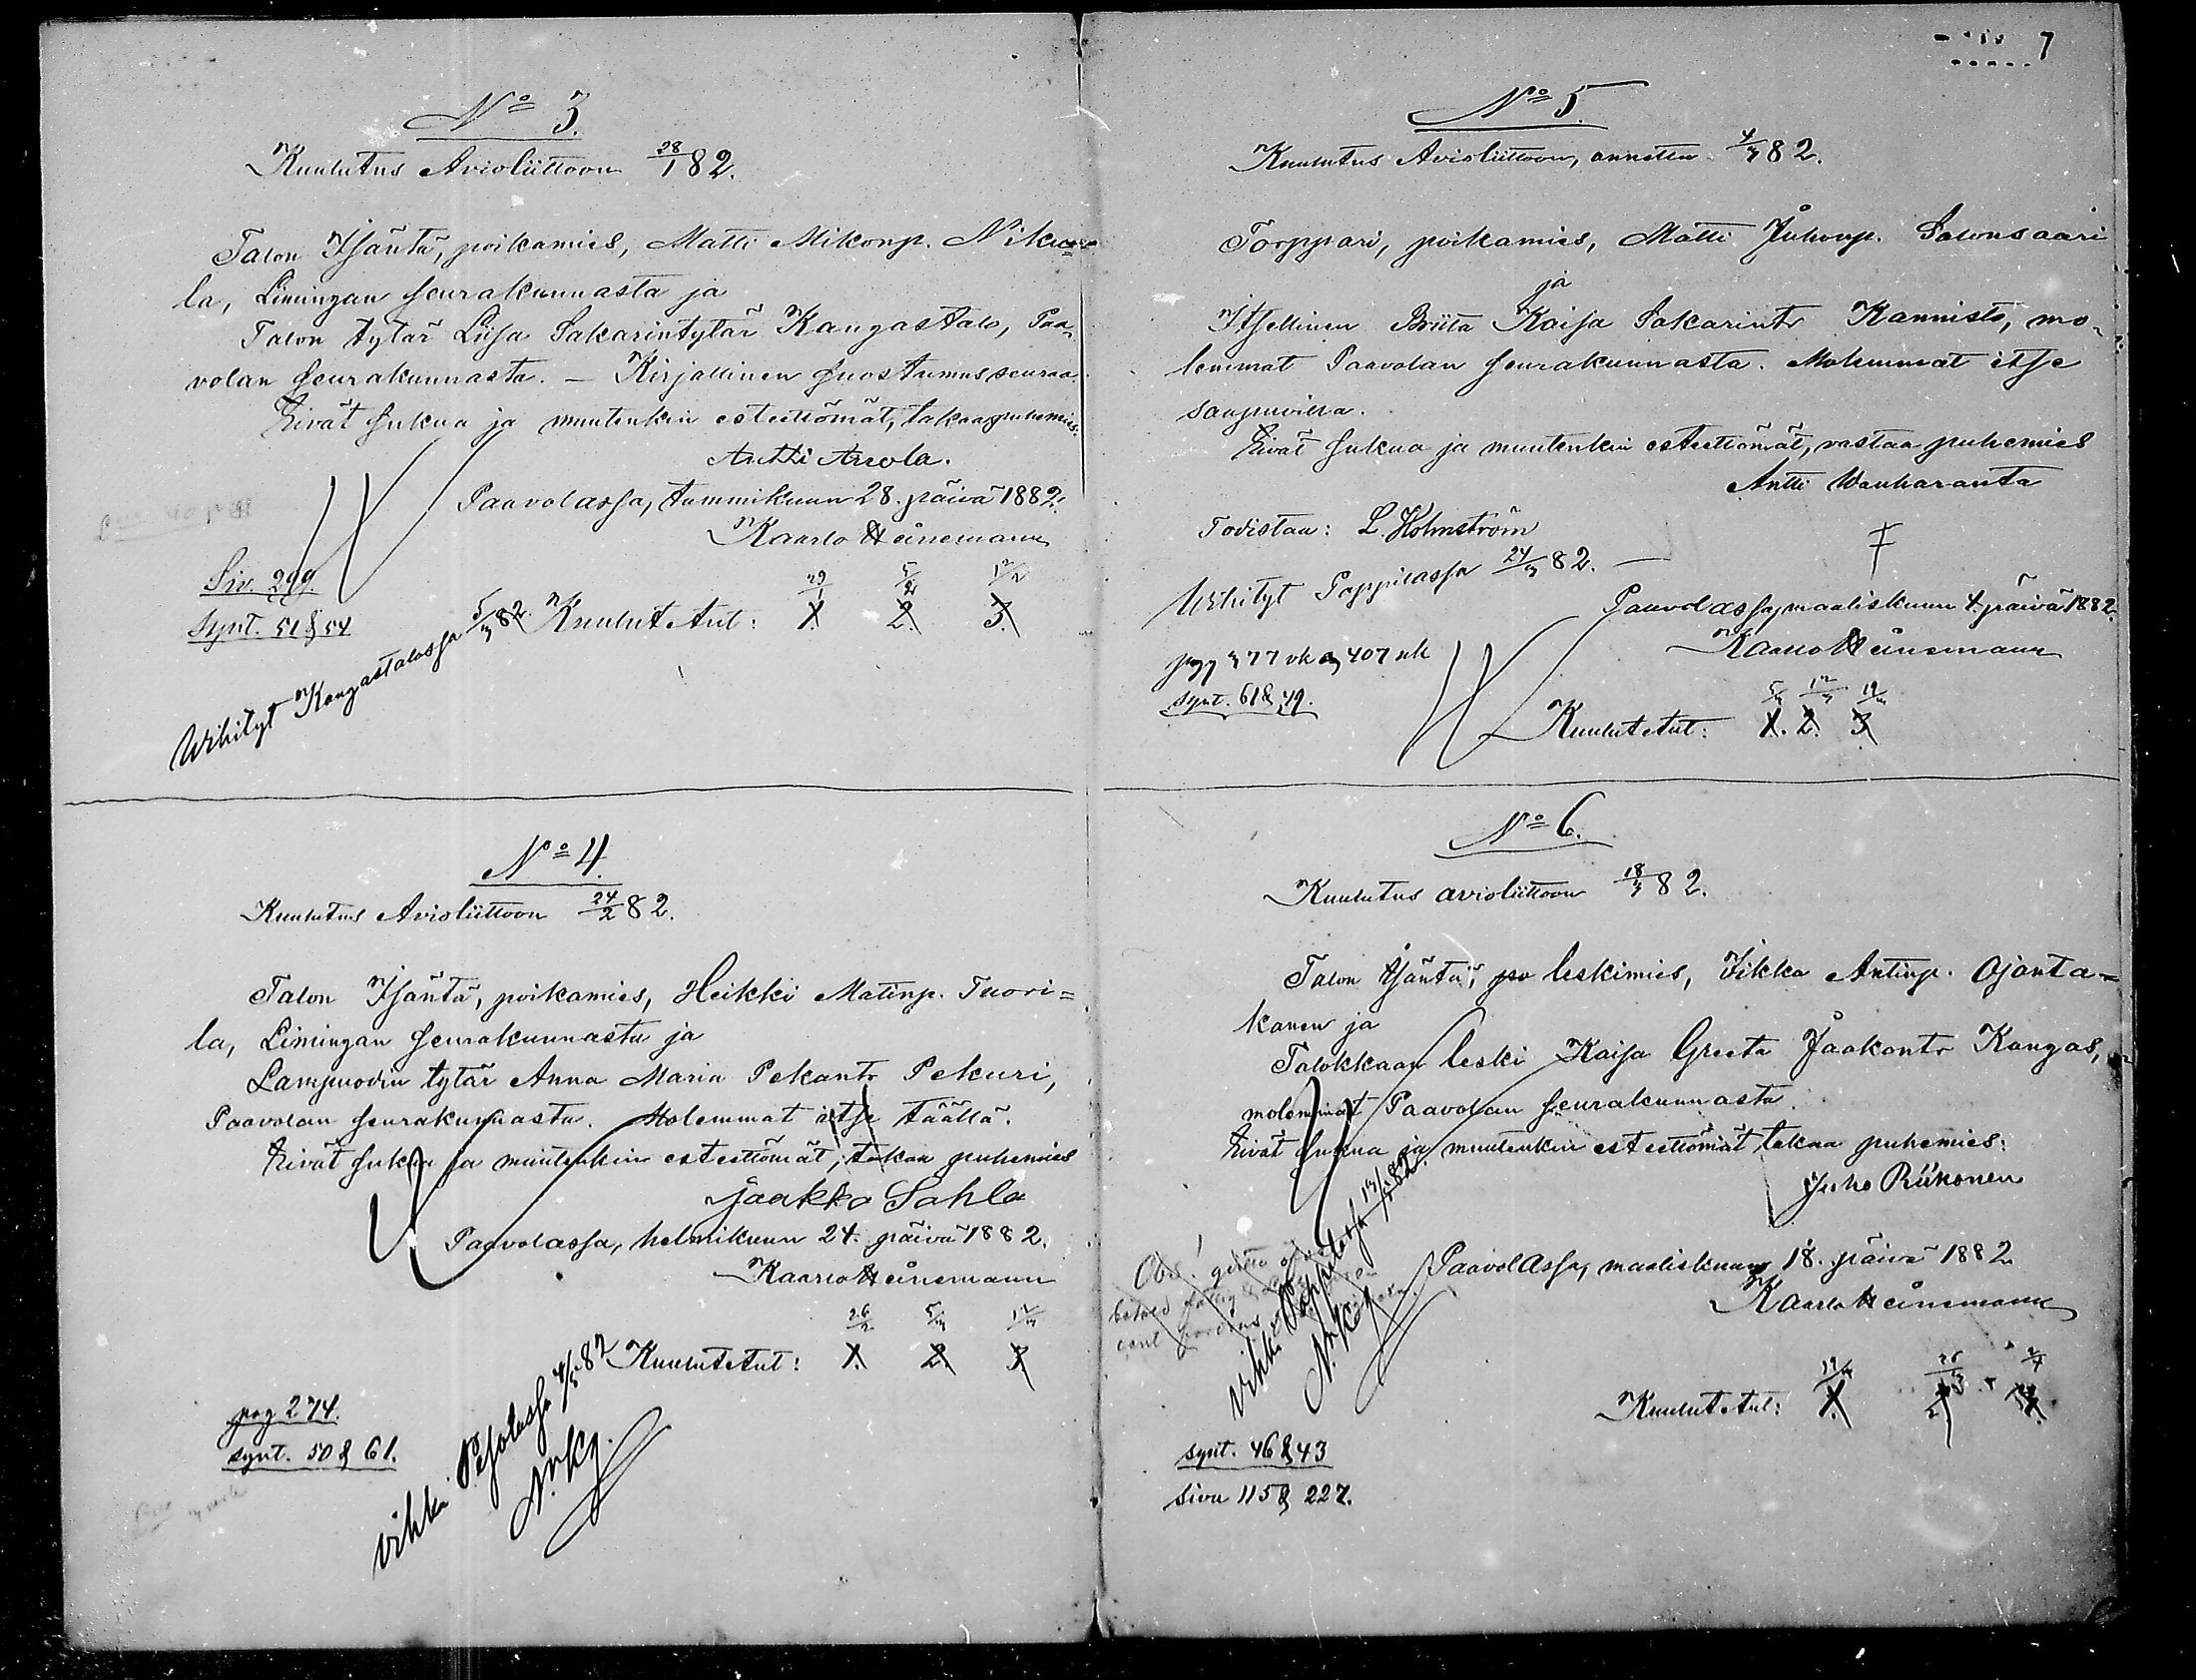 No 3.
Kuulutus Avioliittoon 28/1 82.
Talon Isäntä, poikamies, Matti Mikonp. Niku=
la, Limingan seurakunnasta ja
Talon tytär Liisa Sakarintytär Kangastalo, Paa-
volan seurakunnasta. — Kirjallinen suostumus seuraa.
Eivät sukua ja muutenkin esteettömät, takaa puhemies:
Antti Areola.
Paavolassa, tammikuun 28. päivä 1882.
Kaarlo Heinemann
Siv. 299.
synt. 51 & 54
Wihityt Kangastalossa 5/3 82.
Kuulutetut: 29/1 1. 5/2 2. 12/2 3.
No 4.
Kuulutus Avioliittoon 24/2 82.
Talon Isäntä, poikamies, Heikki Matinp. Tuori=
la, Limingan seurakunnasta ja
Lampuodin tytär Anna Maria Pekantr Pekuri,
Paavolan seurakunnasta. Molemmat itse täällä.
Eivät sukua ja muutenkin esteettömät, takaa puhemies
Jaakko Sahla
Paavolassa, helmikuun 24. päivä 1882.
Kaarlo Heinemann
Kuulutetut: 26/2 1. 5/3 2. 12/3 3.
pag 274.
synt. 50 & 61.
vihki 82
7
No 5.
Kuulutus Avioliittoon, annettu 4/3 82.
Torppari, poikamies, Matti Juhonp. Salonsaari
ja
Itsellinen Briita Kaisa Sakarintr Kannisto, mo-
lemmat Paavolan seurakunnasta. Molemmat itse
saapuvilla.
Eivät sukua ja muutenkin esteettömät, vastaa puhemies
Antti Wanharanta
Todistaa: L. Holmström
Wihityt Pappilassa 24/3 82. —
Paavolassa, maaliskuun 4. päivä 1882.
Kaarlo Heinemann
synt. 61 & 49.
Kuulutetut: 5/3 1. 12/3 2. 19/3 3.
No 6.
Kuulutus avioliittoon 18/3 82.
Talon Isäntä, leskimies, Iikka Antinp. Ojanta=
kanen ja
Talokkaan leski Kaisa Greeta Jaakontr Kangas,
molemmat Paavolan seurakunnasta.
Eivät sukua ja muutenkin esteettömät takaa puhemies:
Juho Riikonen
Paavolassa, maaliskuun 18. päivä 1882
Kaarlo Heinemann
Obs!
vihki Pappilassa
Kuulutetut: 19/3 1. 26/3 2.
synt. 46 & 43
sivu 115 & 227.